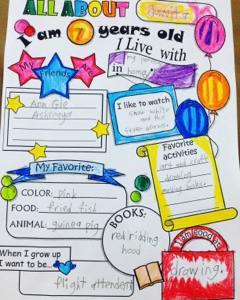 ALL ABOUT
I am 7 years old
I Live with
my
in home!
My Friends Are
Ana
I like to watch
Snow white
and the
seven dwarves
Favorite
activities
art and craft
drawing
My Favorite:
COLOR: pink
FOOD: fried fish
ANIMAL: guinea pig
BOOKS:
red riding
hood
I am good at
drawing.
When I grow up
I want to be...
flight attendent